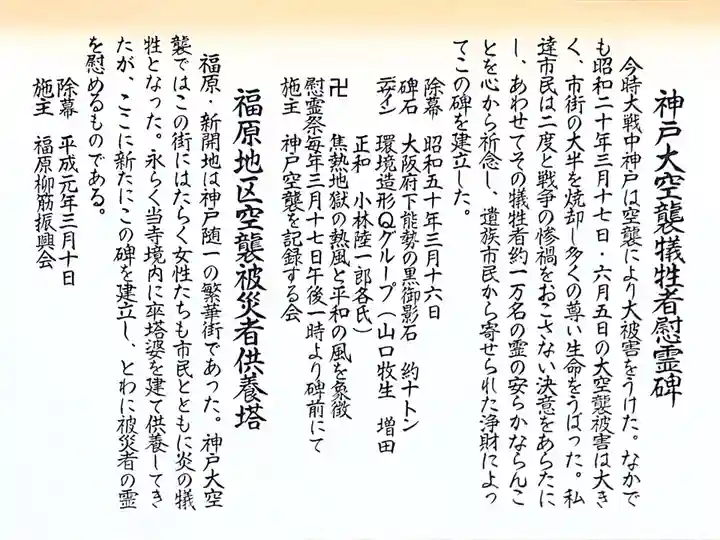 神戸大空襲犠牲者慰霊碑
今時大戦中神戸は空襲により大被害をうけた。なかで
も昭和二十年三月十七日・六月五日の大空襲被害は大き
く、市街の大半を焼却し多くの尊い生命をうばった。私
達市民は二度と戦争の惨禍をおこさない決意をあらたに
し、あわせてその犠牲者約一万名の霊の安らかならんこ
とを心から祈念し、遺族市民から寄せられた浄財によっ
てこの碑を建立した。
除幕 昭和五十年三月十六日
碑石 大阪府下能勢の黒御影石 約十トン
デザイン 環境造形Qグループ(山口牧生 増田
正和 小林陸一郎各氏)
卍 焦熱地獄の熱風と平和の風を象徴
慰霊祭毎年三月十七日午後一時より碑前にて
施主 神戸空襲を記録する会
福原地区空襲被災者供養塔
福原・新開地は神戸随一の繁華街であった。神戸大空
襲ではこの街にはたらく女性たちも市民とともに炎の犠
牲となった。永らく当寺境内に卒塔婆を建て供養してき
たが、ここに新たにこの碑を建立し、とわに被災者の霊
を慰めるものである。
除幕 平成元年三月十日
施主 福原柳筋振興会